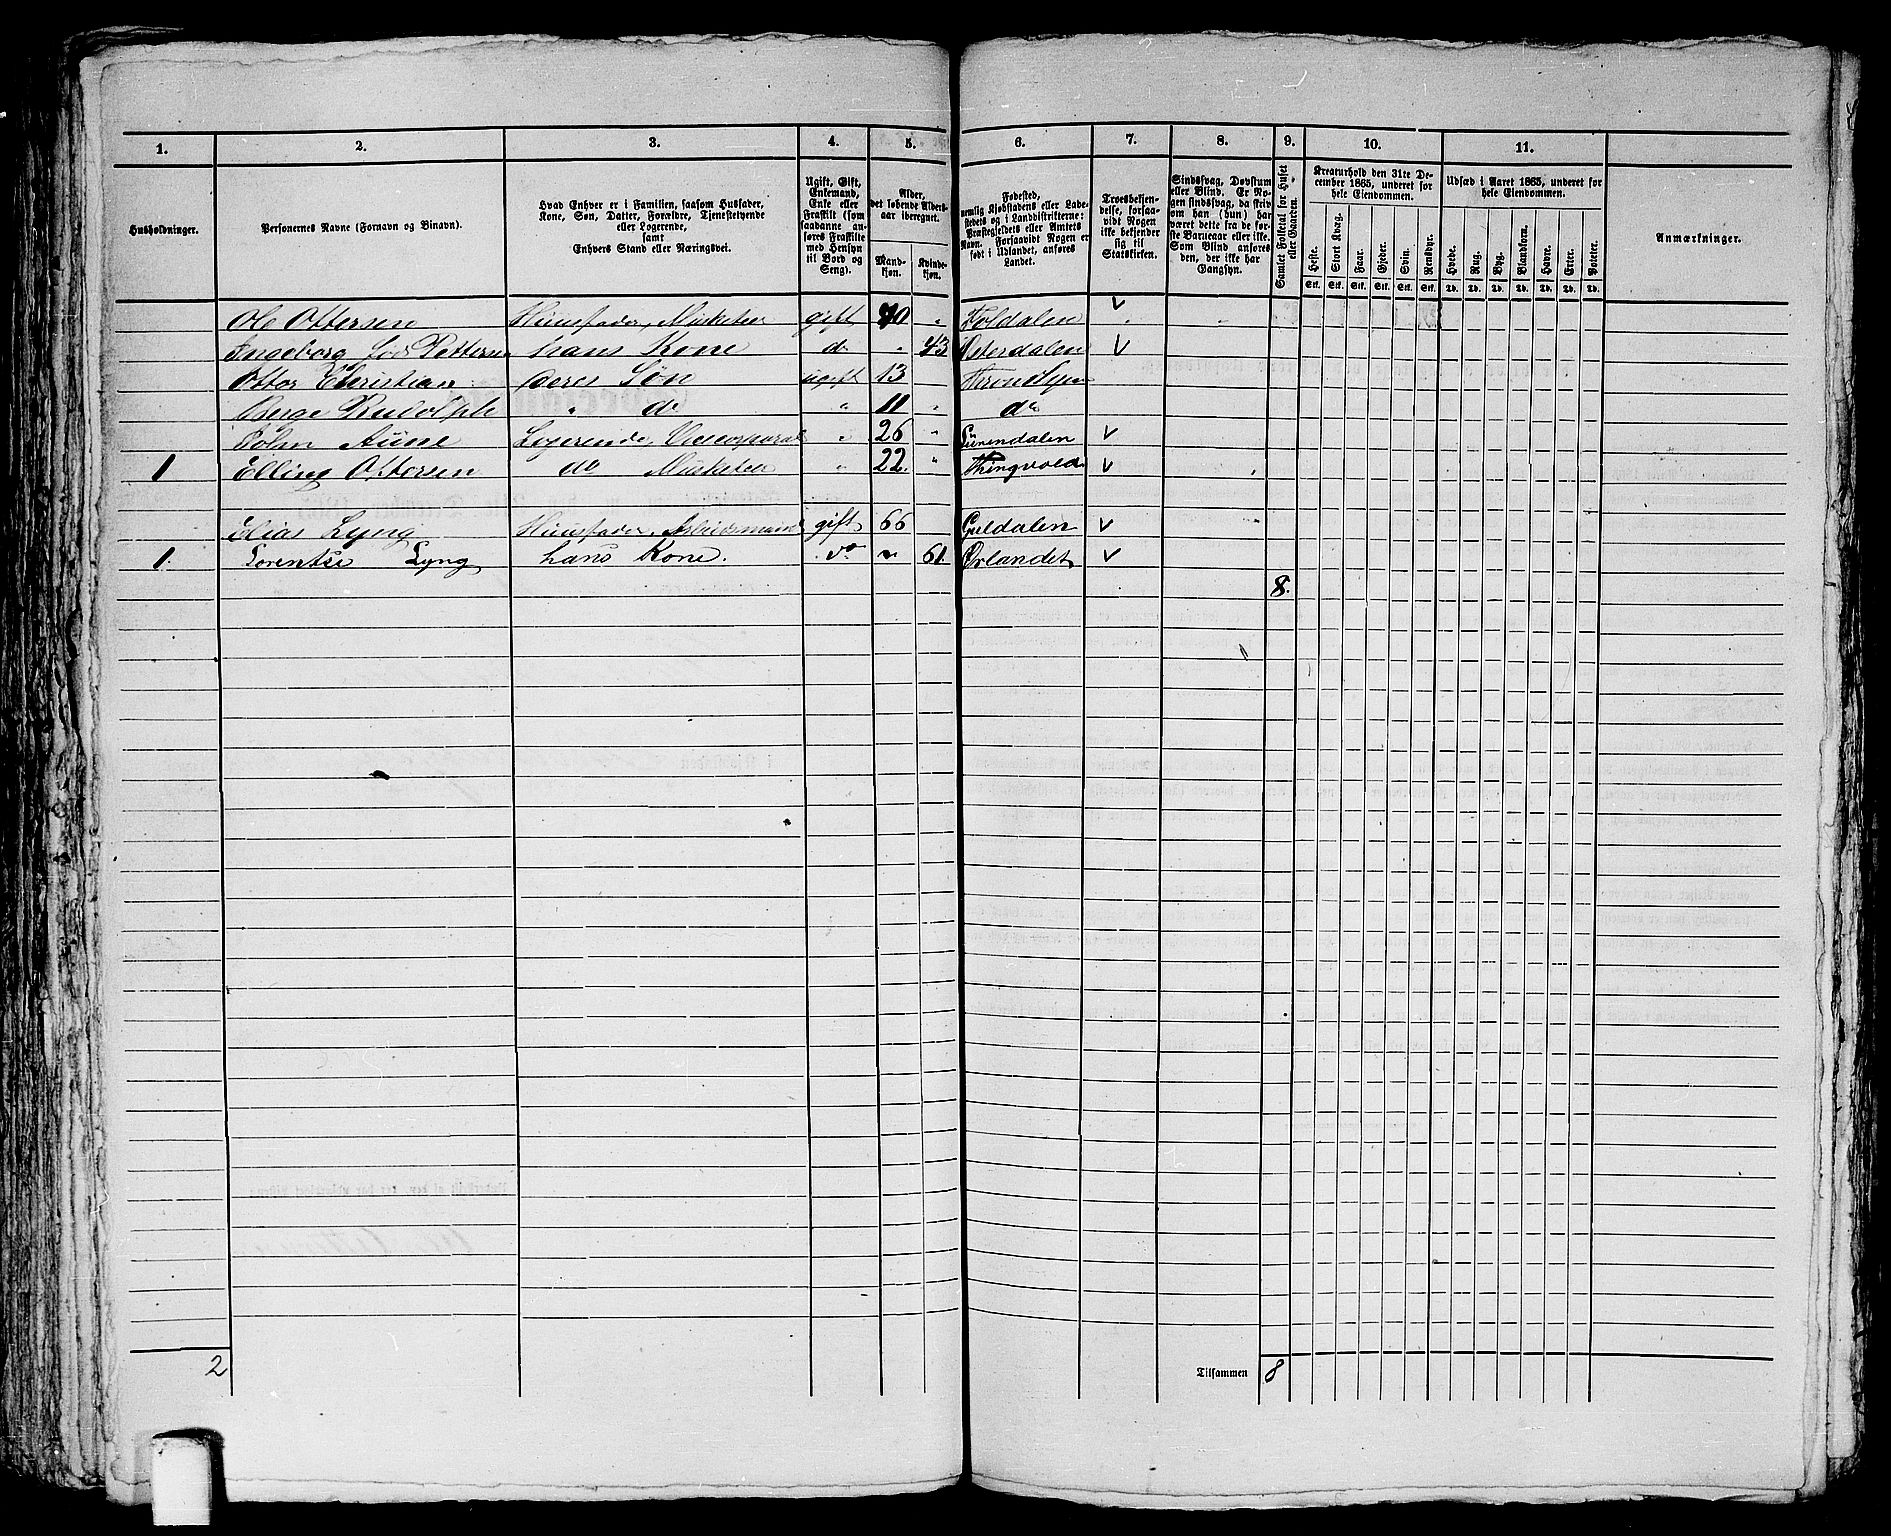 1. 2. 3. 4. 5. 6. 7. 8. 9. 10. 11.
Husholdninger.
Personernes Navne (Fornavn og Binavn).
Hvad Enhver er i Familien, saasom Husfader,
Kone, Søn, Datter, Forældre, Tjenestetyende
eller Logerende,
samt
Enhvers Stand eller Næringsvei.
Ugift, Gift,
Enkemand,
Enke eller
Fraskilt (som
saadanne anføres Fraskilte
med Hensyn
til Bord og
Seng).
Alder,
det løbende Aldersaar iberegnet.
Mandkjøn.
Kvindekjøn.
Fødested,
nemlig Kjøbstadens eller Ladestedets og i Landdistrikterne:
Præstegjeldets eller Amtets
Navn. Forsaavidt Nogen er
født i Udlandet, anføres
Landet.
Troesbekjendelse, forsaavidt Nogen
ikke bekjender
sig til
Statskirken.
Sindssvag, Døvstum
eller Blind. Er Nogen sindssvag, da skriv
om han (hun) har
været dette fra de første Barneaar eller ikke.
Som Blind anføres
den, der ikke har
Gangsyn.
Samlet Folketal for Huset
eller Gaarden.
Kreaturhold den 31te December 1865, underet for
hele Eiendommen.
Heste. Stort Kvæg. Faar. Gjeder. Svin. Rensdyr.
Stk. Stk. Stk. Stk. Stk. Stk.
Udsæd i Aaret 1865, underet for
hele Eiendommen.
Hvede. Rug. Byg. Blandkorn. Havre. Erter. Poteter.
Td. Td. Td. Td. Td. Td. Td.
Anmærkninger.
Ole Ottersen Huusfader, Musketeer gift 40 " Foldalen v
Ingeborg fød Petterse hans Kone do " 43 Østerdalen v
Ottor Christian deres Søn ugift 13 Throndhjem
Berge Rudolph " do " 11 " do
John Aune Logerende, Vicecorporal " 26 " Surendalen v
1 Elling Ottersen do Musketeer " 22. " Thingvold v
Elias Lyng Huusfader, Arbeidsmand gift 66 Guldalen v
1. Lorentse Lyng hans Kone. do " 61. Ørlandet v
8.
2 Tilsammen 8